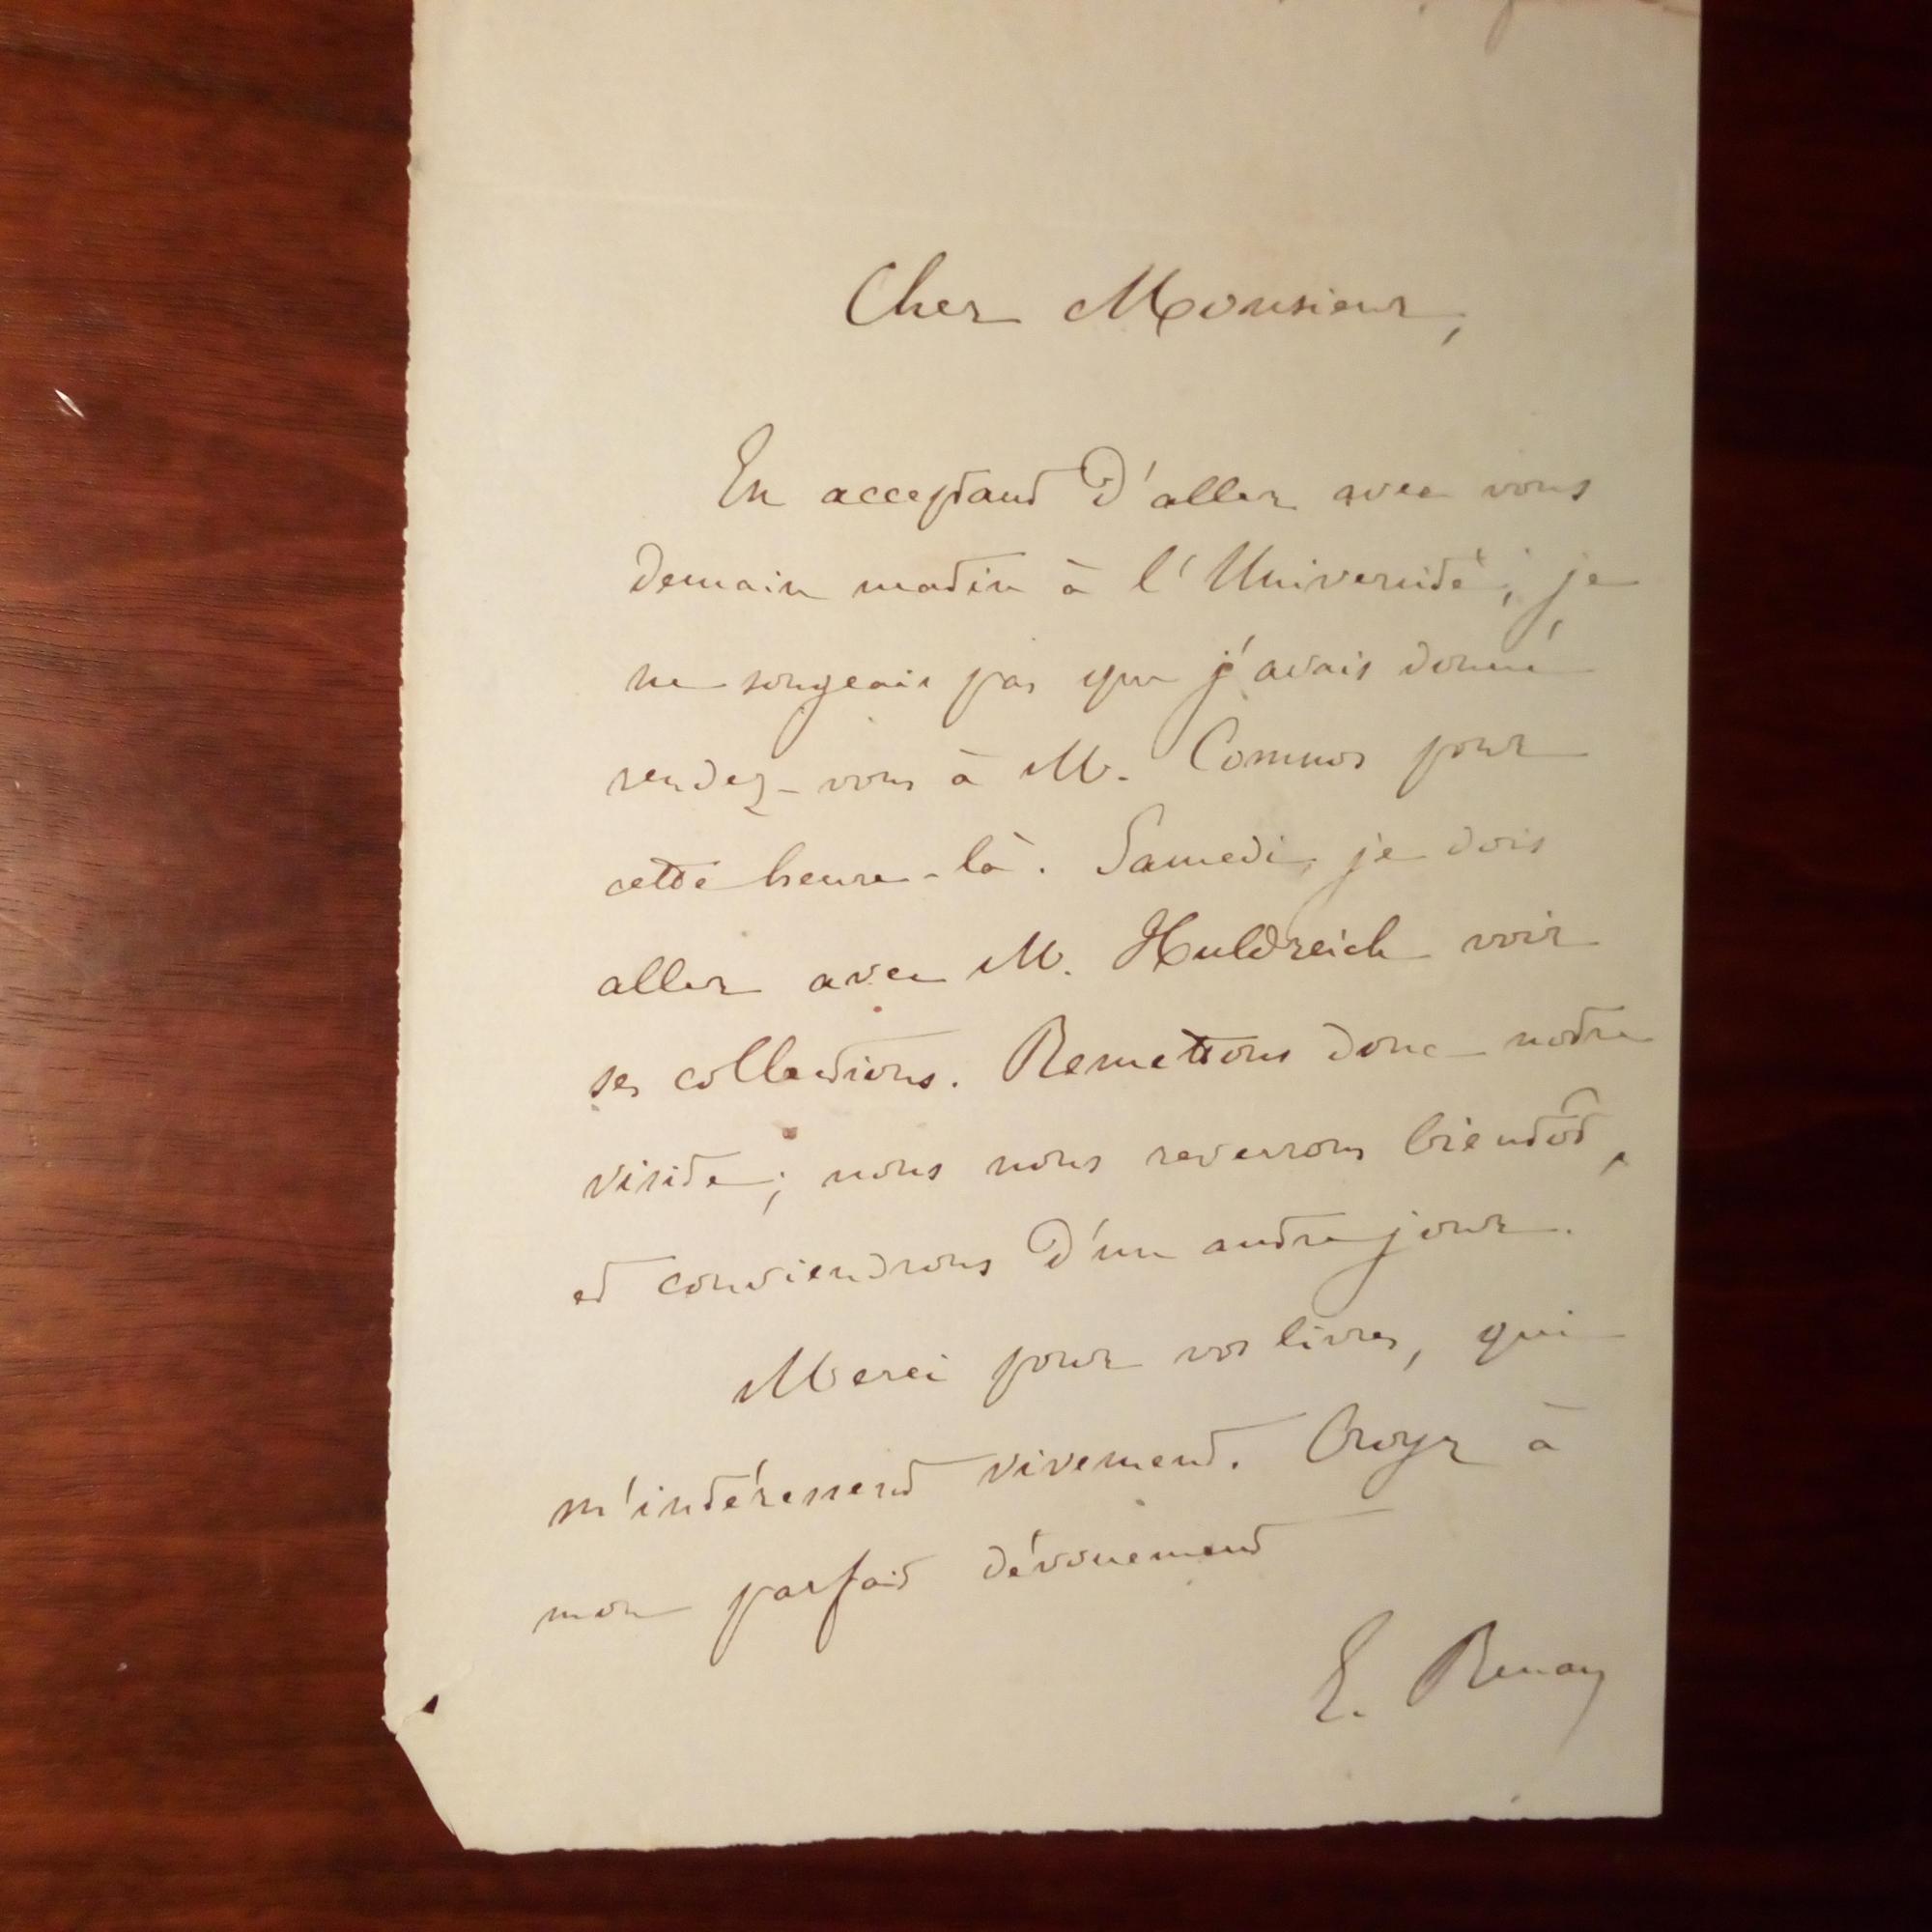 Cher Monsieur,
En acceptant d'aller avec vous
demain matin à l'Université, je
ne songeais pas que j'avais donné
rendez-vous à M. Comnos pour
cette heure-là. Samedi, je dois
aller avec M. Huldreich voir
ses collections. Remettons donc notre
visite; nous nous reverrons bientôt,
et conviendrons d'un autre jour.
Merci pour vos livres, qui
m'intéressent vivement. Croyez à
mon parfait dévouement
E. Renan